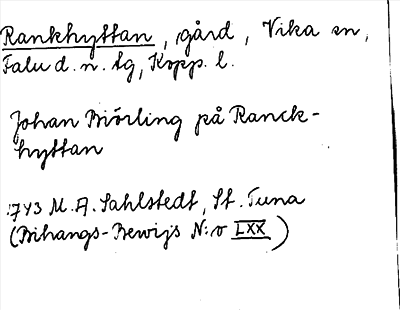 Rankhyttan, gård, Vika sn,
Falu d. n. tg, Kopp. l.
Johan Biörling på Ranck-
hyttan
1743 M. A. Sahlstedt, St. Tuna
(Bihangs-Bewijs N:o LXX)